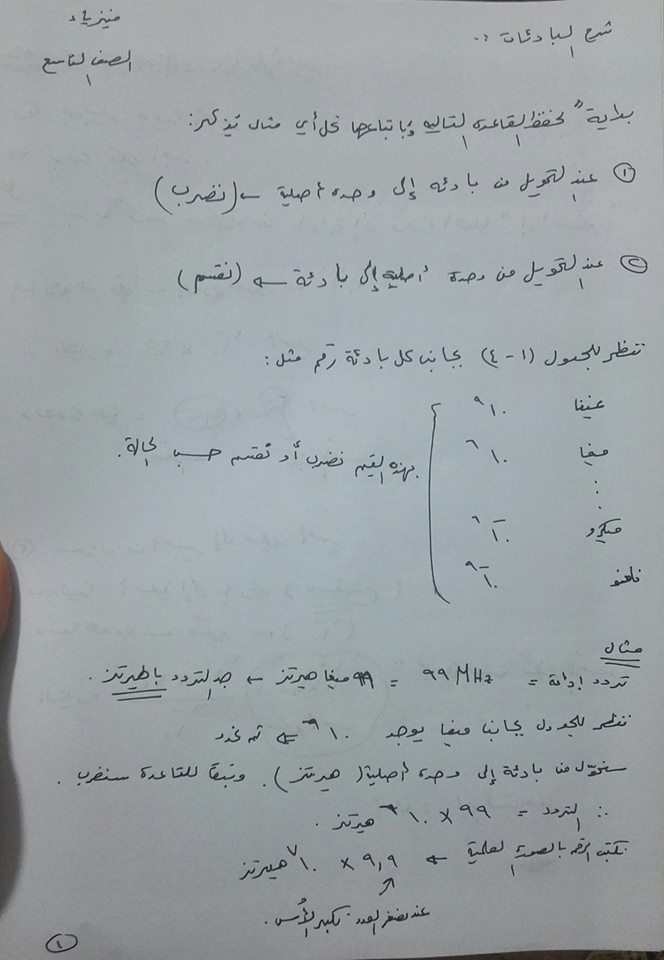 فيزياء
الصف التاسع
شرح البادئات :-
بداية" نحفظ القاعدة التاليه وباتباعها نحل أي مثال يُذكر:
① عند التحويل من بادئه إلى وحدة أصلية ← (نضرب)
② عند التحويل من وحدة أصليه إلى بادئة ← (نقسم)
ننظر للجدول (١-٤) بجانب كل بادئة رقم مثل:
غيغا ١٠^٩
ميغا ١٠^٦
:
ميكرو ١٠^-٦
نانو ١٠^-٩
بهذه القيم نضرب أو نقسم حسب الحالة.
مثال
تردد إذاعة = 99 MHz = 99 ميغا هيرتز ← جد التردد بالهيرتز.
ننظر للجدول بجانب ميغا يوجد ١٠^٦ ← ثم نحدد
سنحوّل من بادئة إلى وحدة أصلية (هيرتز). وتبقاً للقاعدة سنضرب.
∴ التردد = ٩٩ × ١٠^٦ هيرتز.
نكتب الرقم بالصورة العلمية ← ٩,٩ × ١٠^٧ هيرتز
عند تصغير العدد نكبر الأُسس.
①